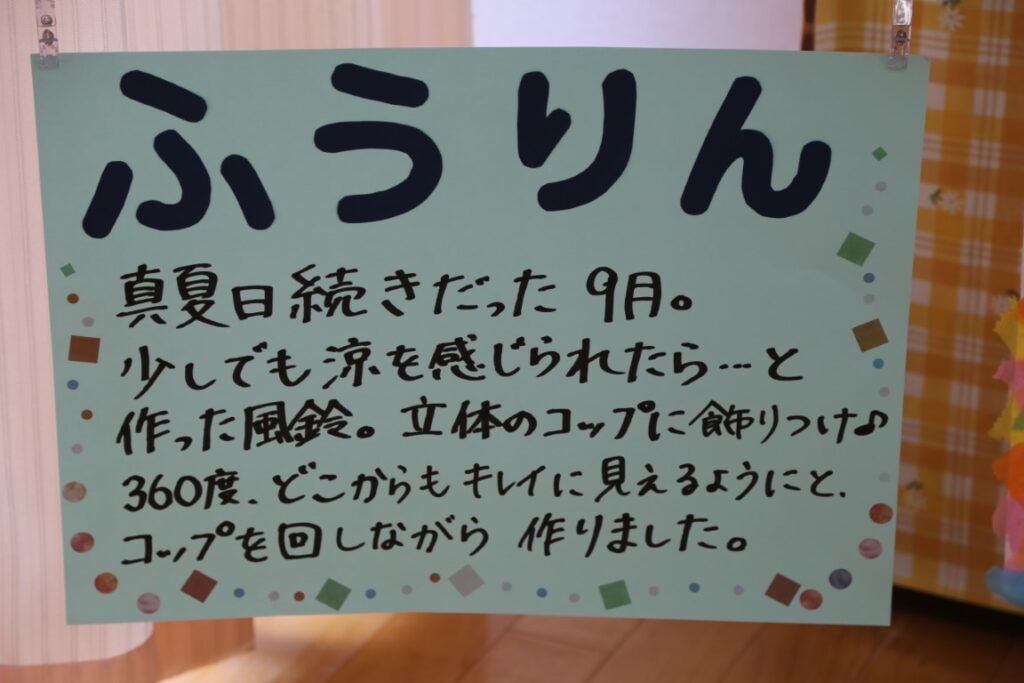 ふうりん
真夏日続きだった 9月。
少しでも涼を感じられたら…と
作った風鈴。立体のコップに飾りつけ♪
360度、どこからもキレイに見えるようにと、
コップを回しながら 作りました。